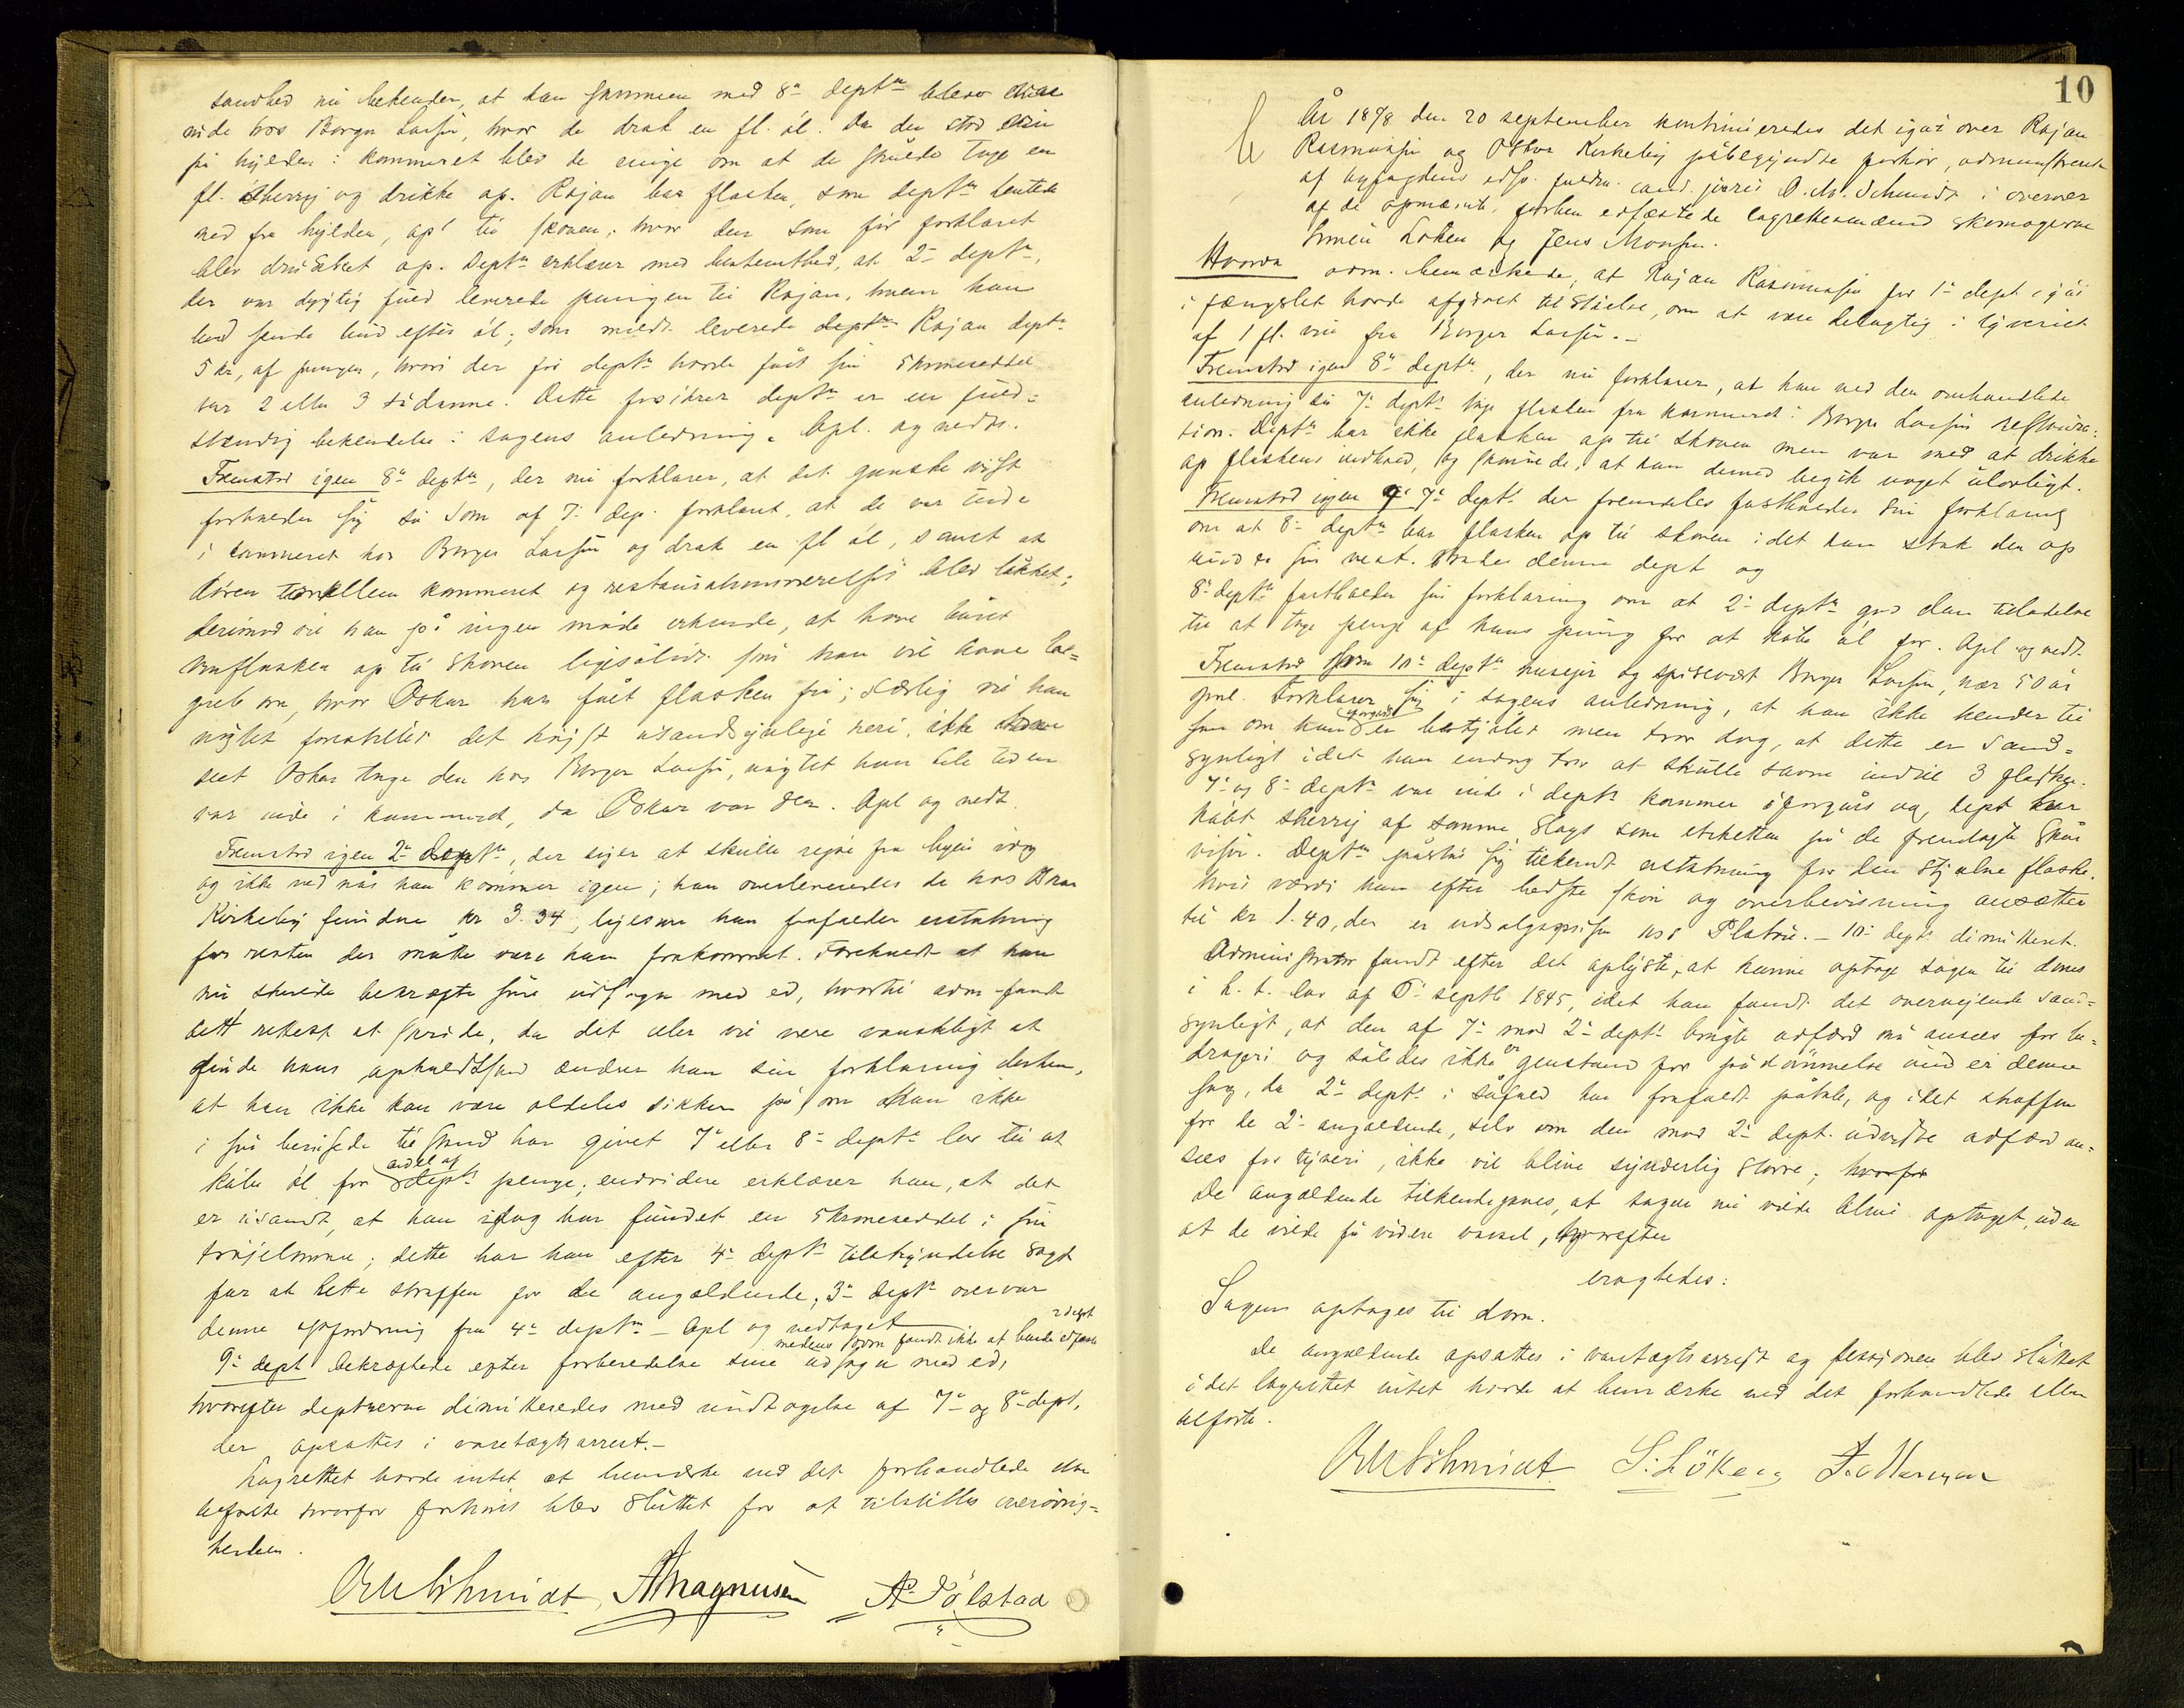 sandhed nu bekender, at han sammen med 8de deptn blev
inde hos Borger Larsen, hvor de drak en fl. øl. Da der stod vin
på hylden i kammeret blev de enige om at de skulde tage en
fl. sherry og drikke op. Rojan bar flasken, som deptn hentede
ned fra hylden, op til skoven, hvor den som før forklaret
blev drukket op. Deptn erklærer med bestemthed, at 2den deptn,
der var dygtig fuld leverede pungen til Rojan, hvem han
bad sende bud efter øl; som meldt leverede deptn Rojan deptn
5 kr, af pungen, hvori der før deptn havde fået sin 5kroneseddel
var 2 eller 3 sådanne. Dette forsikrer deptn er en fuld=
stændig bekendelse i sagens anledning. Opl. og vedt.
Fremstod igen 8de deptn, der nu forklarer, at det ganske vist
forholder sig så som af 7de dep. forklaret, at de var inde
i kammeret hos Borger Larsen og drak en fl øl, samt at
døren mellem kammeret og restaurationsværelset blev lukket;
derimod vil han på ingen måde erkende, at have båret
vinflasken op til skoven ligesålidt som han vil have be=
greb om, hvor Oskar har fået flasken fra; særlig vil han
uagtet foreholdt det højst usandsynlige heri, ikke have
seet Oskar tage den hos Borger Larsen, uagtet han hele tiden
var inde i kammeret, da Oskar var der. Opl og vedt.
Fremstod igen 2den deptn, der siger at skulle rejse fra byen idag
og ikke ved når han kommer igen; han overleveredes de hos Oskar
Kirkeby fundne kr 3.34, ligesom han frafalder erstatning
for resten der måtte være ham frakommet. Foreholdt at han
nu skulde bekræfte sine udsagn med ed, hvortil adm fandt
det rettest at skride, da det ellers vil være vanskeligt at
finde hans opholdssted ændrer han sin forklaring derhen,
at han ikke kan være aldeles sikker på, om han ikke
i sin berusede tilstand har givet 7de eller 8de deptn lov til at
købe øl for endel af deptn penge; endvidere erklærer han, at det
er usandt, at han idag har fundet en 5kroneseddel i sin
trøjelomme; dette har han efter 4de deptn tilskyndelse sagt
for at lette straffen for de angældende; 3die deptn overvar
denne opfordring fra 4de deptn – Opl og vedtaget
medens adm fandt ikke at burde edfæste 2 dept
9de dept bekræftede efter forberedelse sine udsagn med ed,
hvorefter deptnerne dimitteredes med undtagelse af 7de og 8de dept,
der opsattes i varetægtsarrest.–
Lagrettet havde intet at bemærke ved det forhandlede eller
tilførte hvorfor forhøret blev sluttet for at tilstilles overøvrig=
heden.
OM Schmidt, A Magnusen A. Pølstad
10
År 1878 den 20 september kontinueredes det igår over Rojan
Rasmussen og Oskar Kirkeby påbegyndte forhør, administreret
af byfogdens edsv. fuldm. cand. juris O. M. Schmidt i overvær
af de opnævnte, forhen edfæstede lagrettesmænd skomagerne
Simen Løken og Jens Monsen.
Hvorda adm. bemærkede, at Rojan Rasmussen for 1ste dept igår
i fængslet havde afgivet tilståelse, om at være delagtig i tyveriet
af 1 fl. vin fra Borger Larsen.–
Fremstod igen 8de deptn, der nu forklarer, at han ved den omhandlede
anledning så 7de deptn tage flasken fra kammeret i Borger Larsens restaura=
tion. Deptn bar ikke flasken op til skoven men var med at drikke
op flaskens indhold, og skønnede, at han dermed begik noget ulovligt.
Fremstod igen 7de deptn der fremdeles fastholder sin forklaring
om at 8de deptn bar flasken op til skoven idet han stak den op
under sin vest. denne dept og
8de deptn fastholder sin forklaring om at 2den deptn gav dem tilladelse
til at tage penge af hans pung for at købe øl for. Opl og vedt.
Fremstod som 10de deptn huseier og spisevært Borger Larsen, nær 50 år
gml. Forklarer sig i sagens anledning, at han ikke kender til
som om han forgårs er bestjålet men tror dog, at dette er sand=
synligt idet han endog tror at skulle savne indtil 3 flasker.
7de og 8de deptn var inde i deptn kammer iforgårs og dept har
købt sherry af samme slags som etiketten på de fremlagte skår
viser. Deptn påstår sig tilkendt erstatning for den stjålne flaske,
hvis værdi han efter bedste skøn og overbevisning ansætter
til kr 1.40, der er udsalgsprisen hos Platou.– 10de deptn dimitteret.
Administrator fandt efter det oplyste, at kunne optage sagen til doms
i h. t. lov af septb 1845, idet han fandt det overvejende sand=
synligt, at den af 7de mod 2den deptn brugte adfærd må ansees for be=
drageri og således ikke er genstand for påkjendelse under denne
sag, da 2den deptn i såfald har frafaldt påtale, og idet straffen
for de 2de angældende, selv om den mod 2den dept. udviste adfærd an=
sees for tyveri, ikke vil blive synderlig større; hvorfor
de angældende tilkendegaves, at sagen nu vilde blive optaget, uden
at de vilde få videre varsel, hvorefter
eragtedes:
Sagen optages til dom.
De angældende opsattes i varetægtsarrest og sessionen blev sluttet
idet lagrettet intet havde at bemærke ved det forhandlede eller
tilførte.
OM Schmidt S. Løken J. Monsen